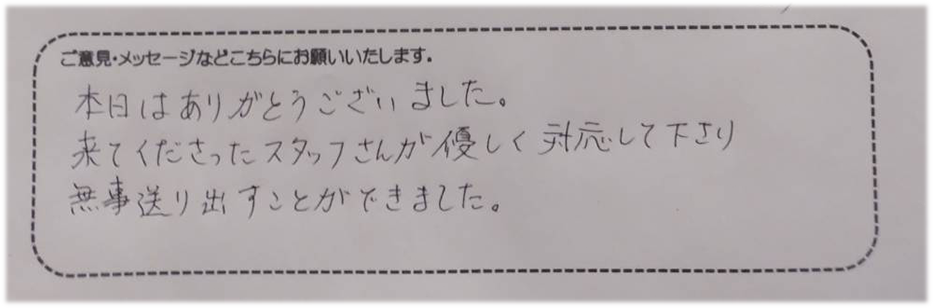 ご意見・メッセージなどこちらにお願いいたします。
本日はありがとうございました。
来てくださったスタッフさんが優しく対応して下さり
無事送り出すことができました。